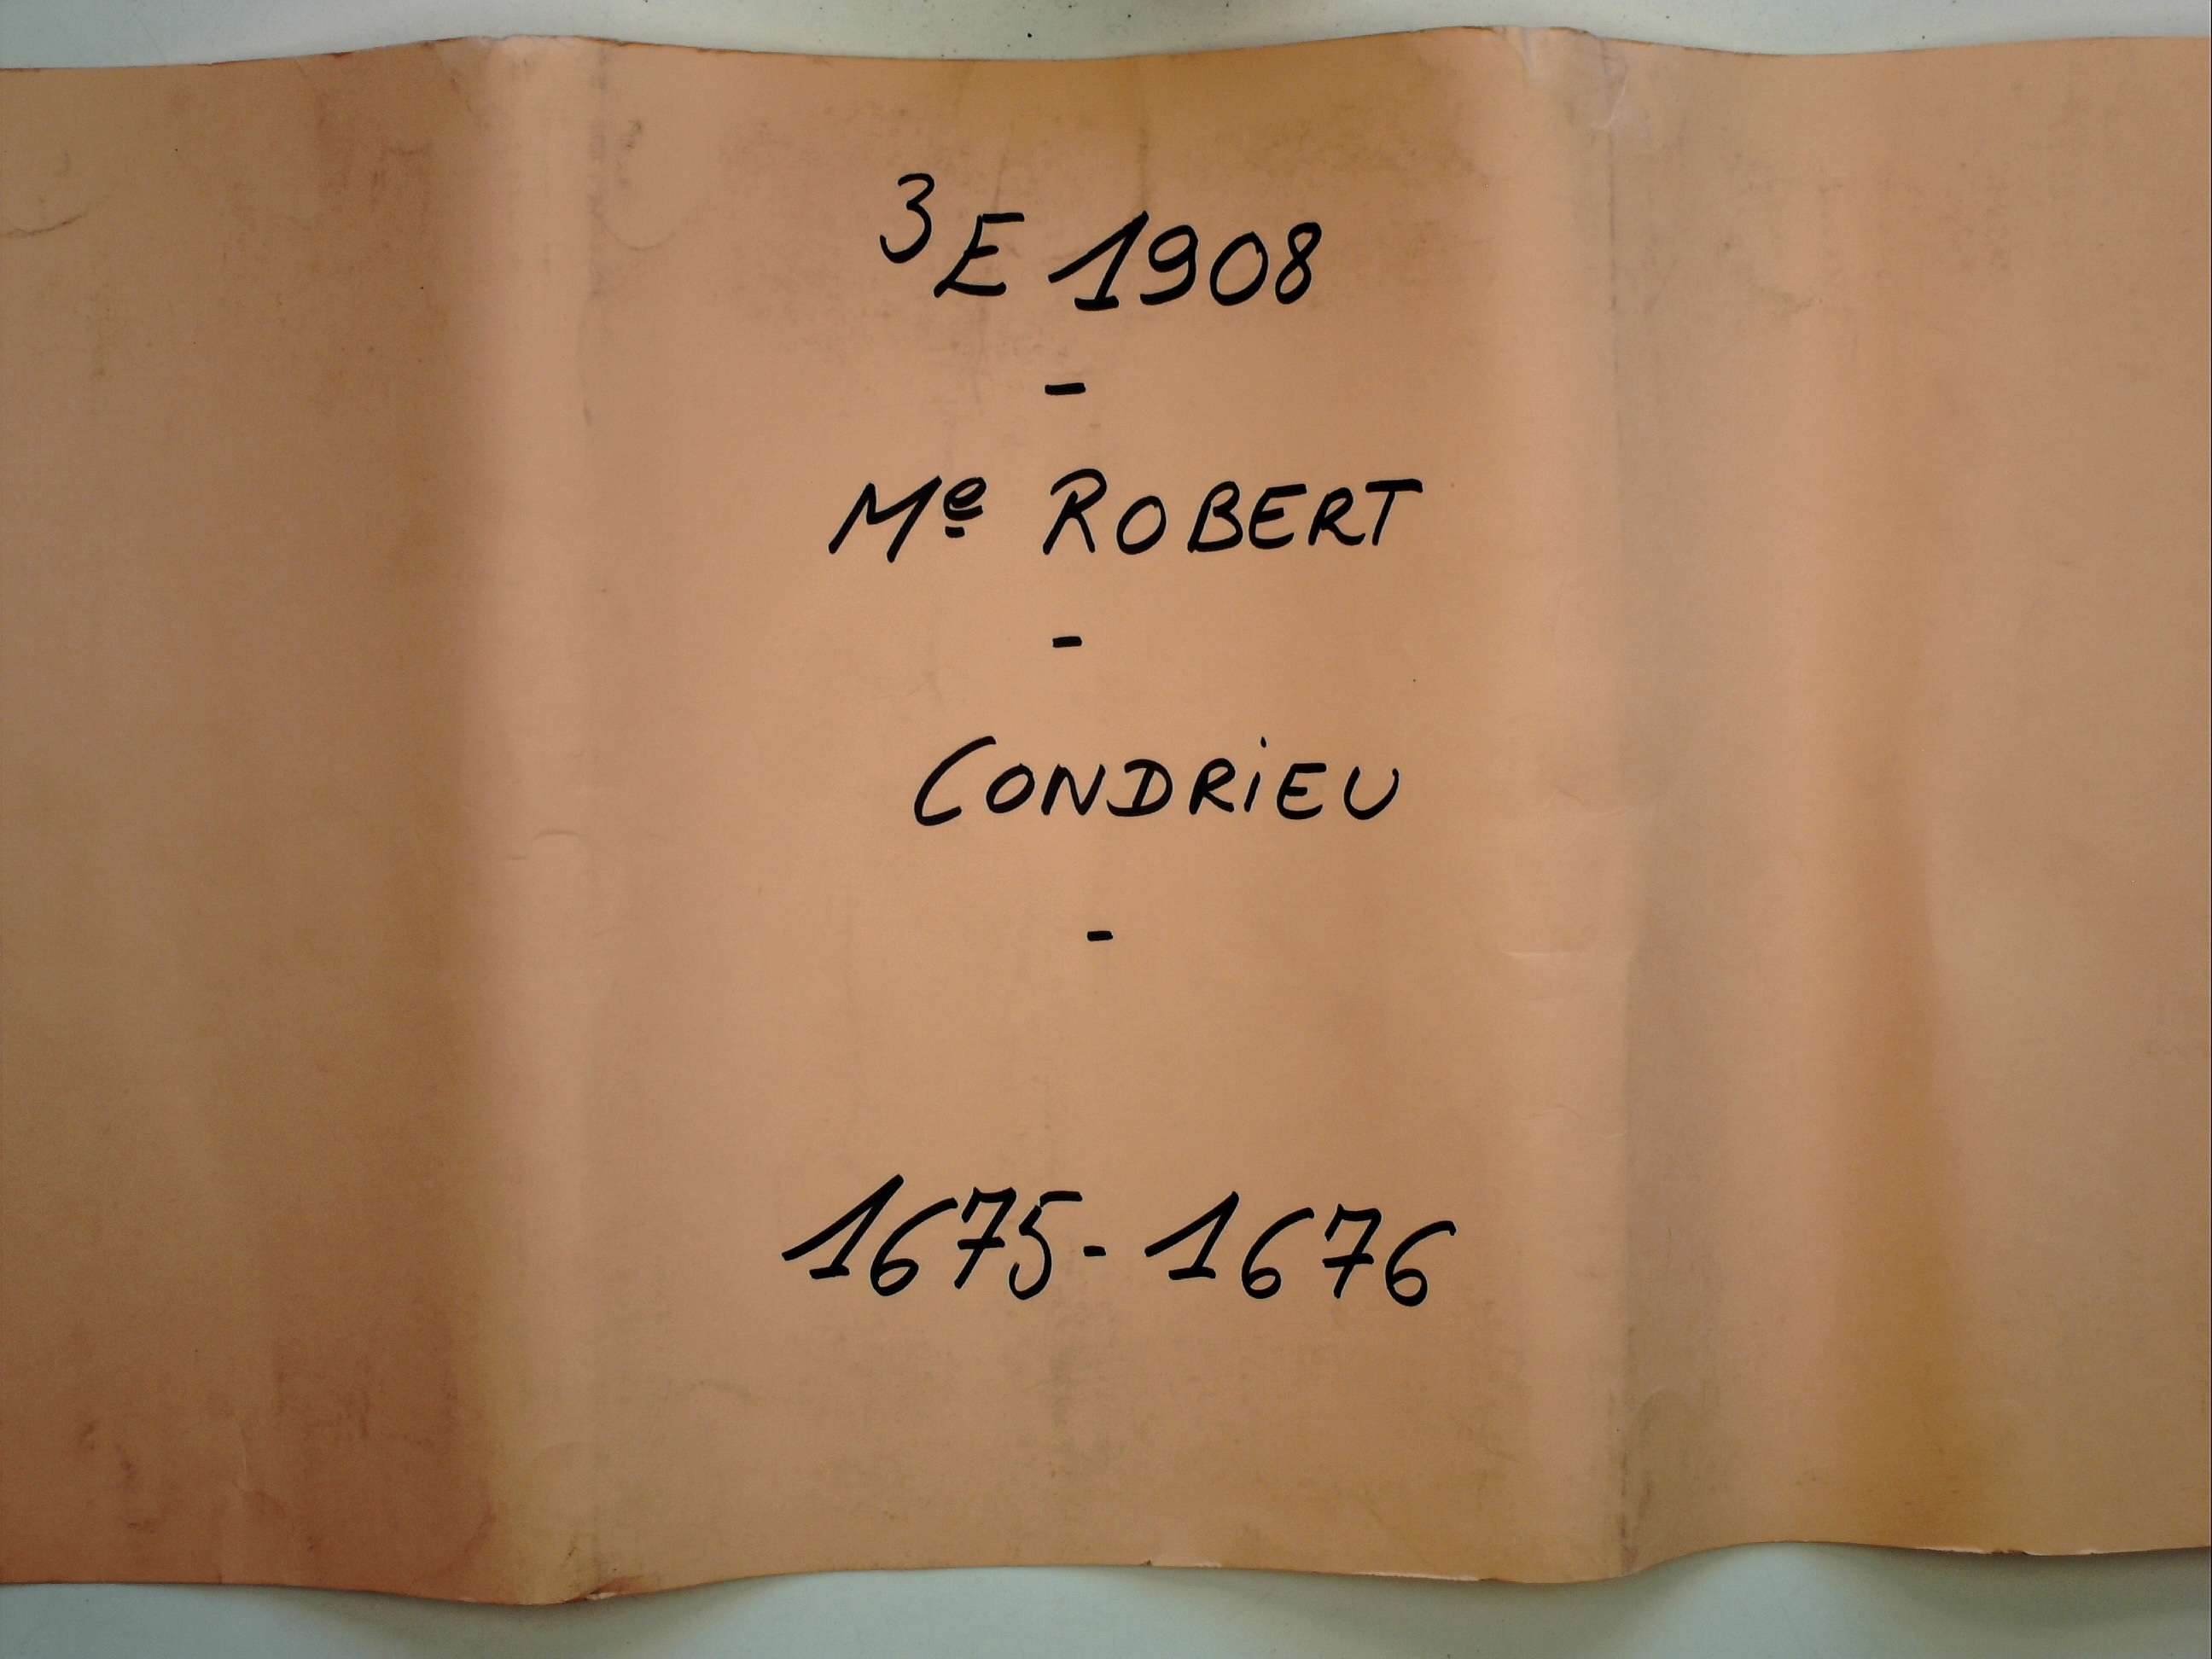 3E 1908
-
Me ROBERT
-
CONDRiEU
-
1675-1676